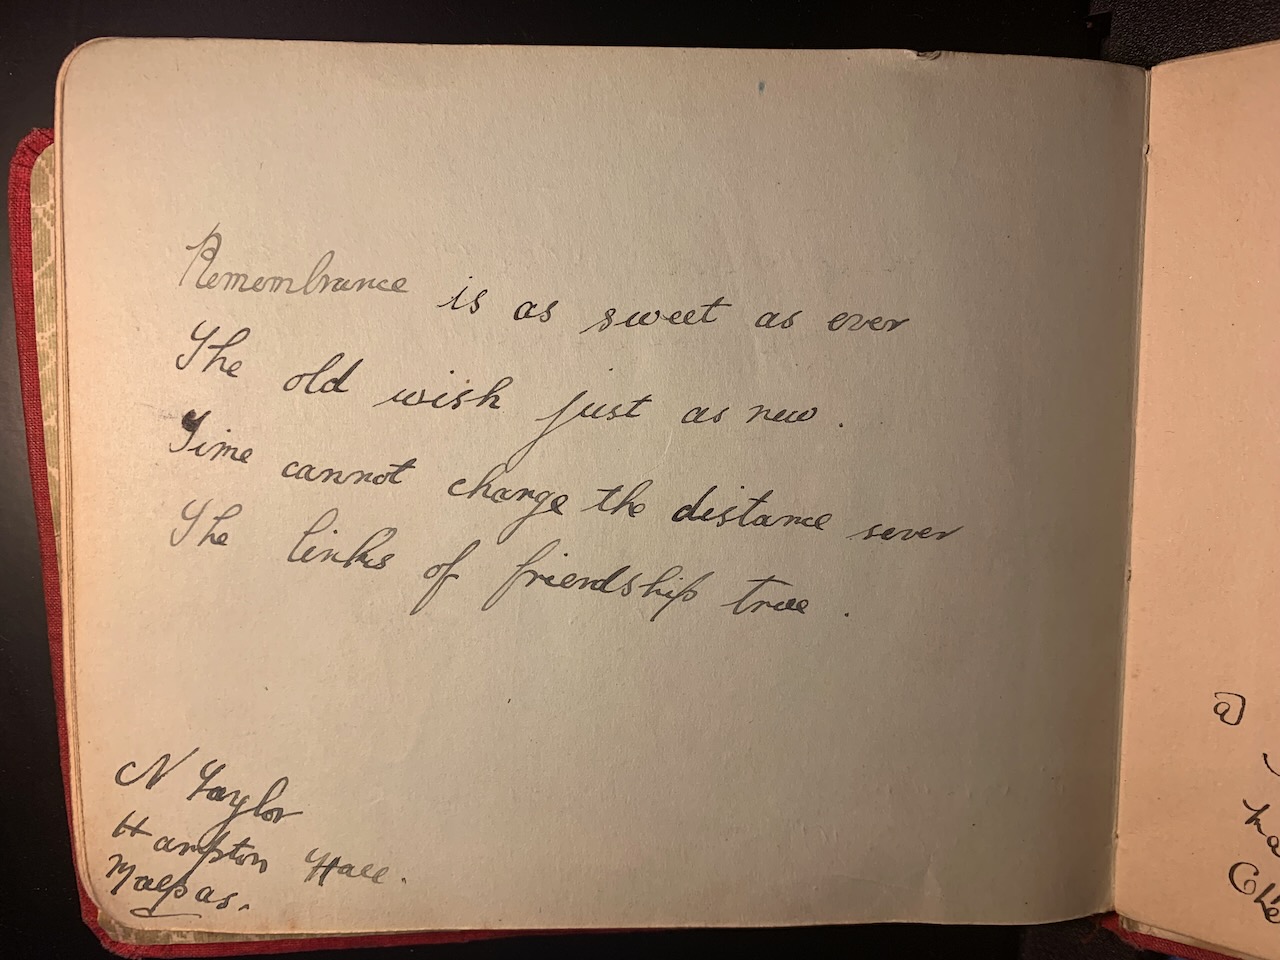 Remembrance is as sweet as ever
The old wish just as new.
Time cannot change the distance sever
The links of friendship true.
N Taylor
Hampton Hall.
Malpas.
a